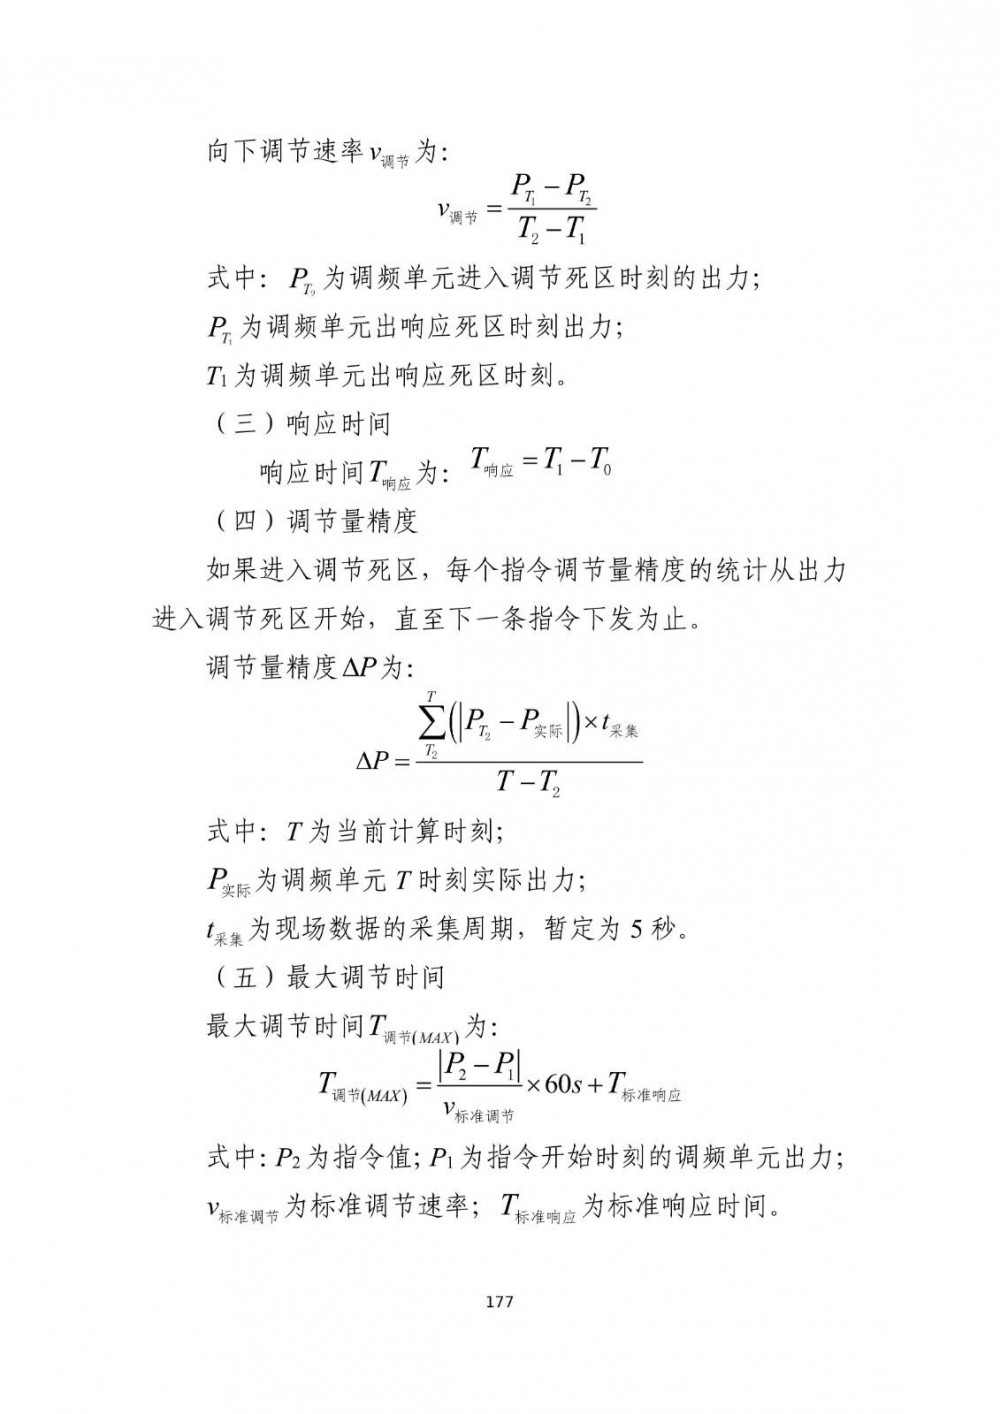 向下调节速率 v调节 为：
v调节 = (P_{T_1} − P_{T_2}) / (T_2 − T_1)
式中： P_{T_2} 为调频单元进入调节死区时刻的出力；
P_{T_1} 为调频单元出响应死区时刻出力；
T1 为调频单元出响应死区时刻。
（三）响应时间
响应时间 T响应 为： T响应 = T_1 − T_0
（四）调节量精度
如果进入调节死区，每个指令调节量精度的统计从出力
进入调节死区开始，直至下一条指令下发为止。
调节量精度 ΔP 为：
ΔP = ∑_{T_2}^{T} (|P_{T_2} − P实际|) × t采集 / (T − T_2)
式中： T 为当前计算时刻；
P实际 为调频单元 T 时刻实际出力；
t采集 为现场数据的采集周期，暂定为 5 秒。
（五）最大调节时间
最大调节时间 T调节(MAX) 为：
T调节(MAX) = |P_2 − P_1| / v标准调节 × 60s + T标准响应
式中：P2 为指令值；P1 为指令开始时刻的调频单元出力；
v标准调节 为标准调节速率； T标准响应 为标准响应时间。
177